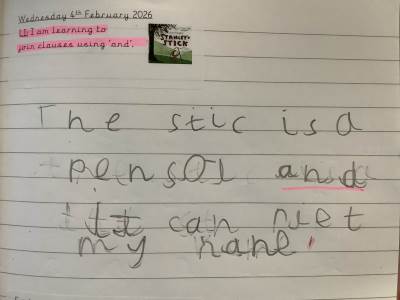 Wednesday 4th February 2026
LI: I am learning to
join clauses using 'and'.
STANLEY'S
STICK
The stic is a
pensol and
it can riet
my name